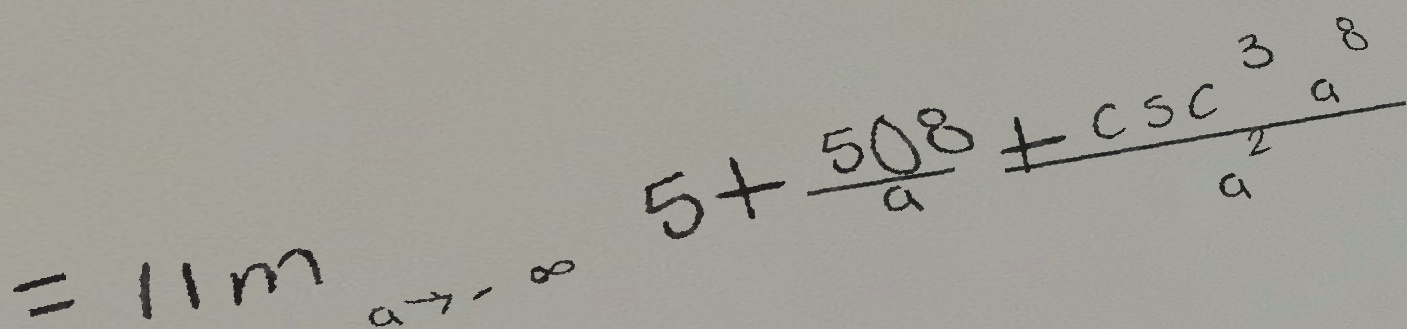 = lim_{a \to -\infty} 5 + \frac{508}{a} + \frac{csc^3 a^8}{a^2}